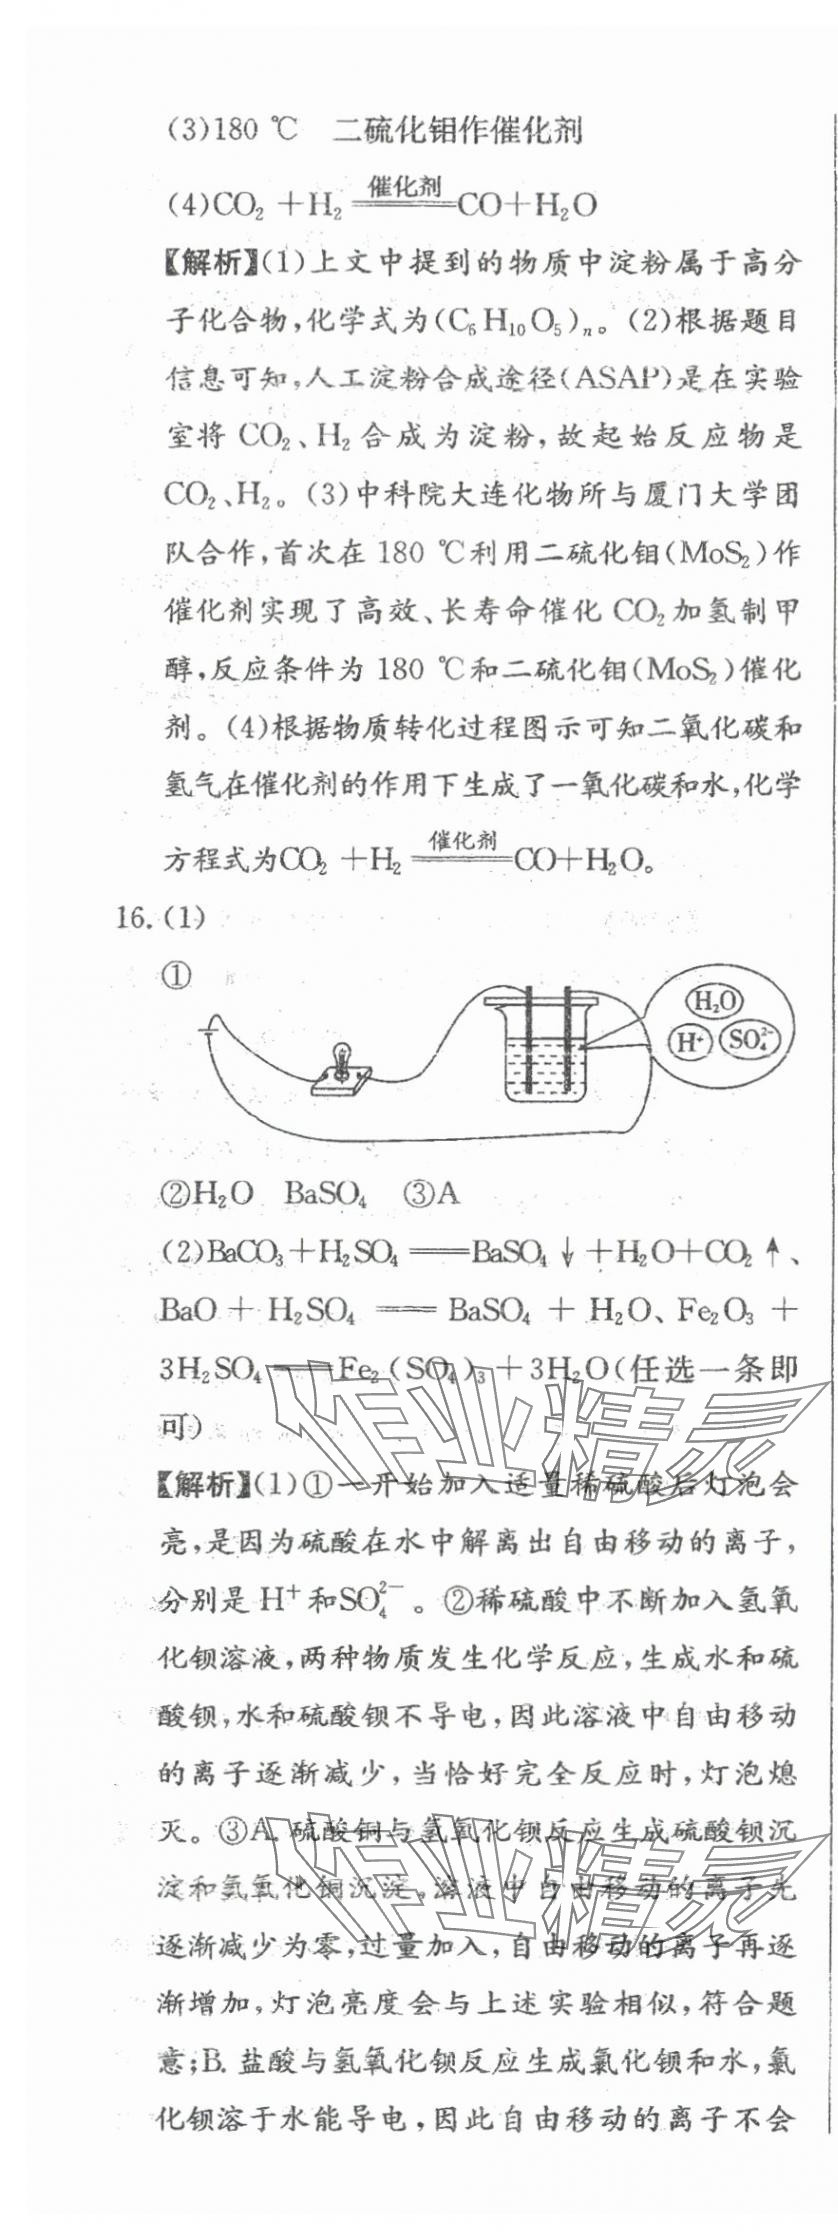 (3)180 ℃ 二硫化钼作催化剂
(4)CO₂+H₂ 催化剂═══ CO+H₂O
【解析】(1)上文中提到的物质中淀粉属于高分
子化合物,化学式为(C₆H₁₀O₅)ₙ。(2)根据题目
信息可知,人工淀粉合成途径(ASAP)是在实验
室将 CO₂、H₂ 合成为淀粉,故起始反应物是
CO₂、H₂。(3)中科院大连化物所与厦门大学团
队合作,首次在 180 ℃利用二硫化钼(MoS₂)作
催化剂实现了高效、长寿命催化 CO₂ 加氢制甲
醇,反应条件为 180 ℃和二硫化钼(MoS₂)催化
剂。(4)根据物质转化过程图示可知二氧化碳和
氢气在催化剂的作用下生成了一氧化碳和水,化学
方程式为CO₂+H₂ 催化剂═══ CO+H₂O。
16.(1)
①
H₂O
H⁺ SO₄²⁻
②H₂O BaSO₄ ③A
(2)BaCO₃+H₂SO₄═══BaSO₄↓+H₂O+CO₂↑、
BaO+H₂SO₄═══BaSO₄+H₂O、Fe₂O₃+
3H₂SO₄═══Fe₂(SO₄)₃+3H₂O(任选一条即
可)
【解析】(1)①一开始加入适量稀硫酸后灯泡会
亮,是因为硫酸在水中解离出自由移动的离子,
分别是 H⁺ 和SO₄²⁻。②稀硫酸中不断加入氢氧
化钡溶液,两种物质发生化学反应,生成水和硫
酸钡,水和硫酸钡不导电,因此溶液中自由移动
的离子逐渐减少,当恰好完全反应时,灯泡熄
灭。③A.硫酸铜与氢氧化钡反应生成硫酸钡沉
淀和氢氧化铜沉淀,溶液中自由移动的离子先
逐渐减少为零,过量加入,自由移动的离子再逐
渐增加,灯泡亮度会与上述实验相似,符合题
意;B.盐酸与氢氧化钡反应生成氯化钡和水,氯
化钡溶于水能导电,因此自由移动的离子不会
作业精灵
作业精灵